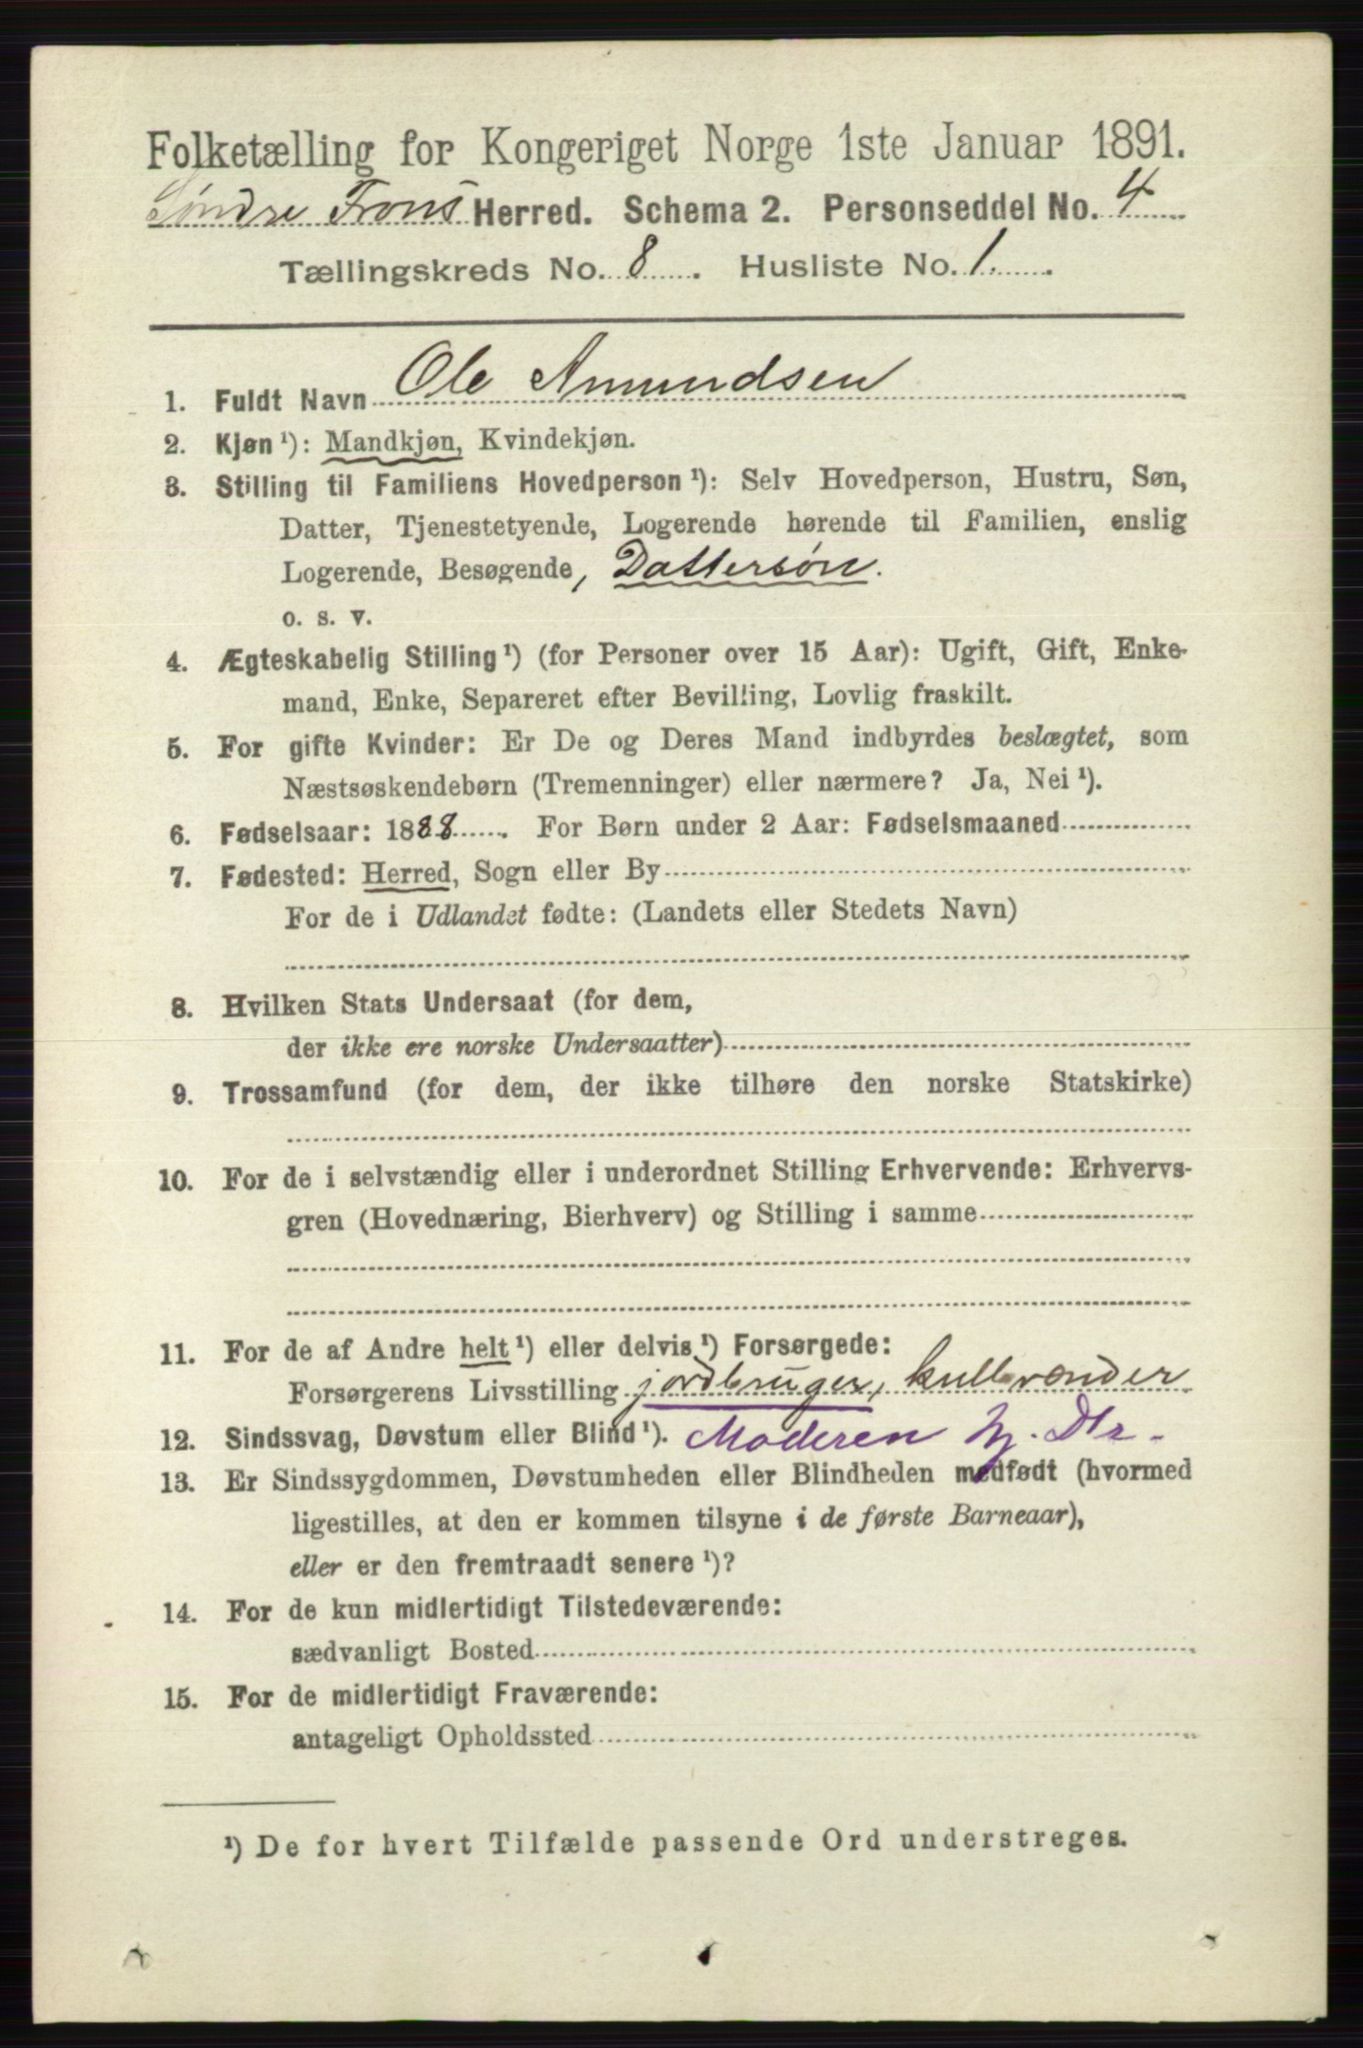 Folketælling for Kongeriget Norge 1ste Januar 1891.
Søndre Frons Herred. Schema 2. Personseddel No. 4
Tællingskreds No. 8. Husliste No. 1.
1. Fuldt Navn Ole Amundsen
2. Kjøn ¹): Mandkjøn, Kvindekjøn.
3. Stilling til Familiens Hovedperson ¹): Selv Hovedperson, Hustru, Søn,
Datter, Tjenestetyende, Logerende hørende til Familien, enslig
Logerende, Besøgende, Dattersøn.
o. s. v.
4. Ægteskabelig Stilling ¹) (for Personer over 15 Aar): Ugift, Gift, Enke-
mand, Enke, Separeret efter Bevilling, Lovlig fraskilt.
5. For gifte Kvinder: Er De og Deres Mand indbyrdes beslægtet, som
Næstsøskendebørn (Tremenninger) eller nærmere? Ja, Nei ¹).
6. Fødselsaar: 1888. For Børn under 2 Aar: Fødselsmaaned
7. Fødested: Herred, Sogn eller By
For de i Udlandet fødte: (Landets eller Stedets Navn)
8. Hvilken Stats Undersaat (for dem,
der ikke ere norske Undersaatter)
9. Trossamfund (for dem, der ikke tilhøre den norske Statskirke)
10. For de i selvstændig eller i underordnet Stilling Erhvervende: Erhvervs-
gren (Hovednæring, Bierhverv) og Stilling i samme
11. For de af Andre helt ¹) eller delvis ¹) Forsørgede:
Forsørgerens Livsstilling jordbruger, kulbrænder
12. Sindssvag, Døvstum eller Blind ¹). Moderen
13. Er Sindssygdommen, Døvstumheden eller Blindheden medfødt (hvormed
ligestilles, at den er kommen tilsyne i de første Barneaar),
eller er den fremtraadt senere ¹)?
14. For de kun midlertidigt Tilstedeværende:
sædvanligt Bosted
15. For de midlertidigt Fraværende:
antageligt Opholdssted
¹) De for hvert Tilfælde passende Ord understreges.